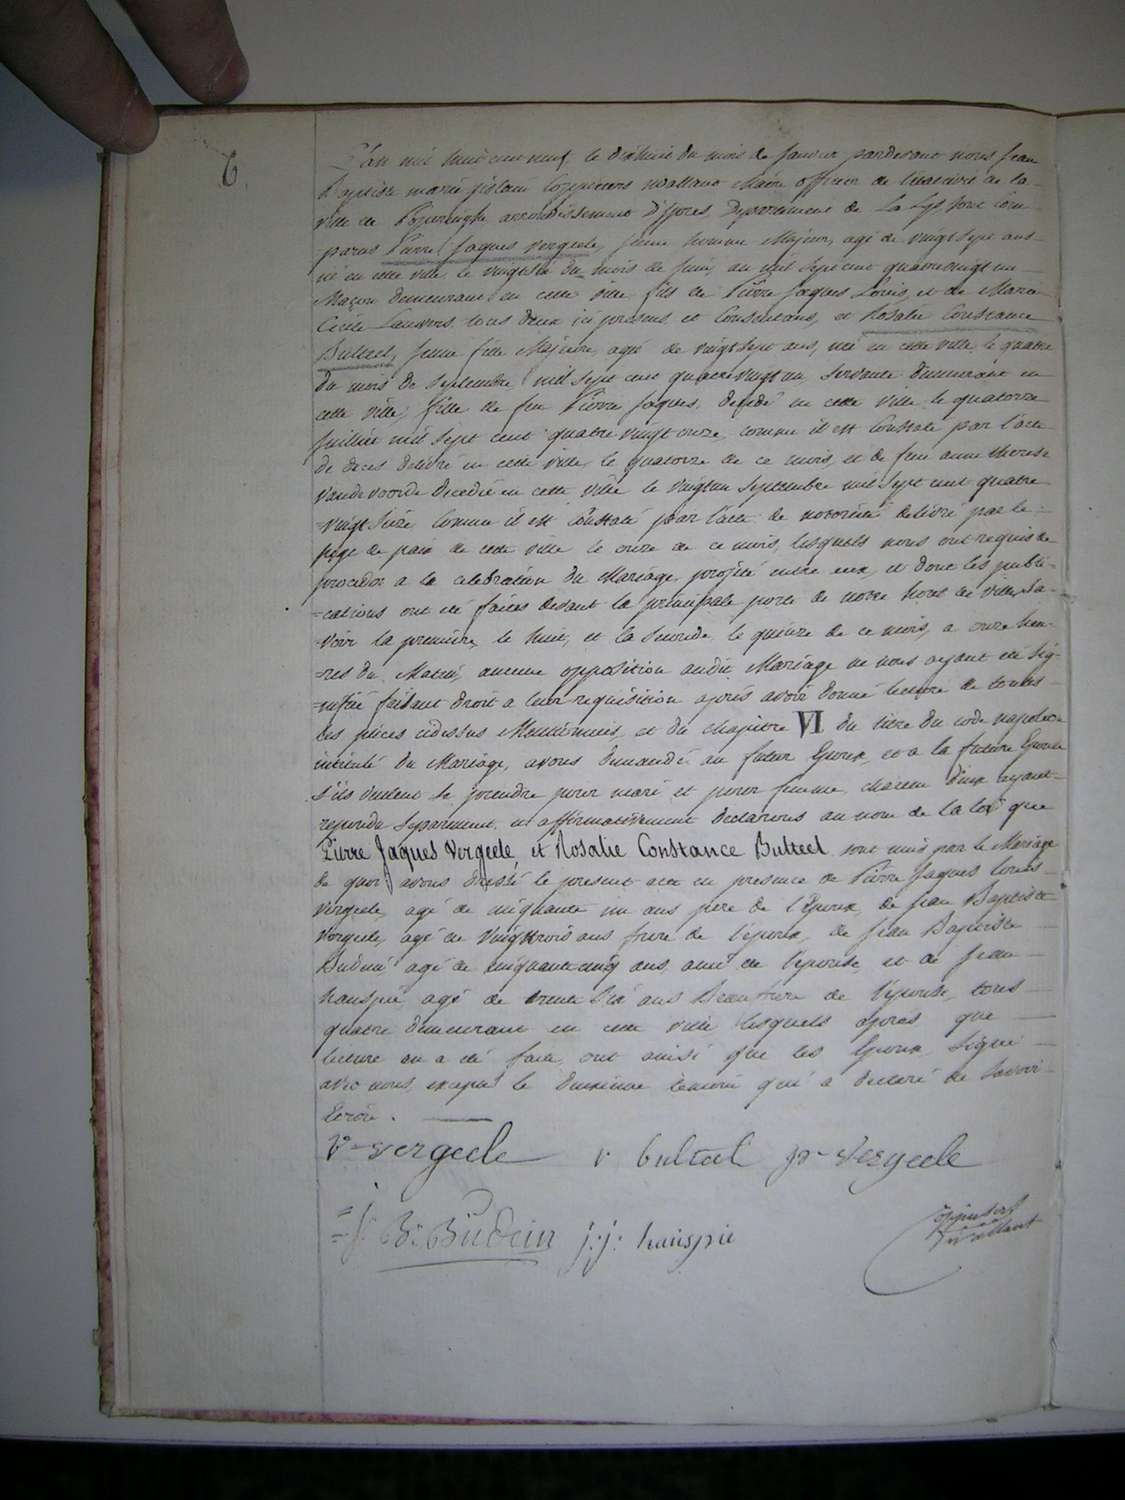 6.
L'an mil huit cent neuf, le dixhuit du mois de Janvier pardevant nous Jean
Baptiste marie Wallaert Maire officier de l'état civil de la
ville de Poperinghe arrondissement d'Ypres, Departement de La Lys sont com-
=parus Pierre Jaques Vergeele, jeune homme Majeur, agé de vingt sept ans
né en cette ville le du mois de Juin, an mil sept cent quatre vingt un
Maçon demeurant en cette ville fils de Pierre Jaques Louis, et de Marie
Cécile Lauwers tous deux ici presens et Consentans, et Rosalie Constance
Bulteel, jeune fille Majeure, agée de vingt sept ans, née en cette ville le quatre
du mois de Septembre mil sept cent quatre vingt un, Servante demeurant en
cette ville, fille de feu Pierre Jaques, decedé en cette ville le quatorze
Juillet mil sept cent quatre vingt onze, comme il est Constaté par l'acte
de deces delivré en cette ville, le quatorze de ce mois, et de feue anne therese
vandevoorde decedée en cette ville le vingt un Septembre mil sept cent quatre
=vingt seize comme il est Constaté par l'acte de notorieté delivré par le
juge de paix de cette ville le onze de ce mois, lesquels nous ont requis de
proceder a la celebration du Mariage projeté entre eux, et dont les publi-
=cations ont été faites devant la principale porte de notre hotel de ville, Sa-
=voir la première, le huit, et la Seconde, le quinze de ce mois, a onze heu-
=res du Matin, aucune opposition audit Mariage ne nous ayant été Sig-
=nifiée faisant droit a leur requisition après avoir donné lecture de toutes
les pièces cidessus Mentionnées, et du chapitre VI du titre du code napoleon
intitulé du Mariage, avons demandé au futur Epoux, et a la future Epouse
s'ils veulent se prendre pour mari et pour femme, chacun d'eux ayant
repondu Separement et affirmativement declarons au nom de la loi que
Pierre Jaques Vergeele, et Rosalie Constance Bulteel sont unis par le Mariage
de quoi avons dressé le present acte en presence de Pierre Jaques Louis
Vergeele, agé de cinquante un ans père de l'Epoux, de Jean Baptiste
Vergeele, agé de vingt trois ans frere de l'époux, de Jean Baptiste
agé de cinquante cinq ans ami de l'épouse, et de Jean
hauspie, agé de trente Six ans Beaufrere de l'épouse, tous
quatre demeurant en cette ville lesquels après que
lecture en a été faite, ont ainsi que les Epoux Signé
avec nous, excepté le deuxieme temoin qui a declaré ne Savoir
Ecrire.
vergeele r bulteel pr vergeele
J: B: Budein j: j: hauspie